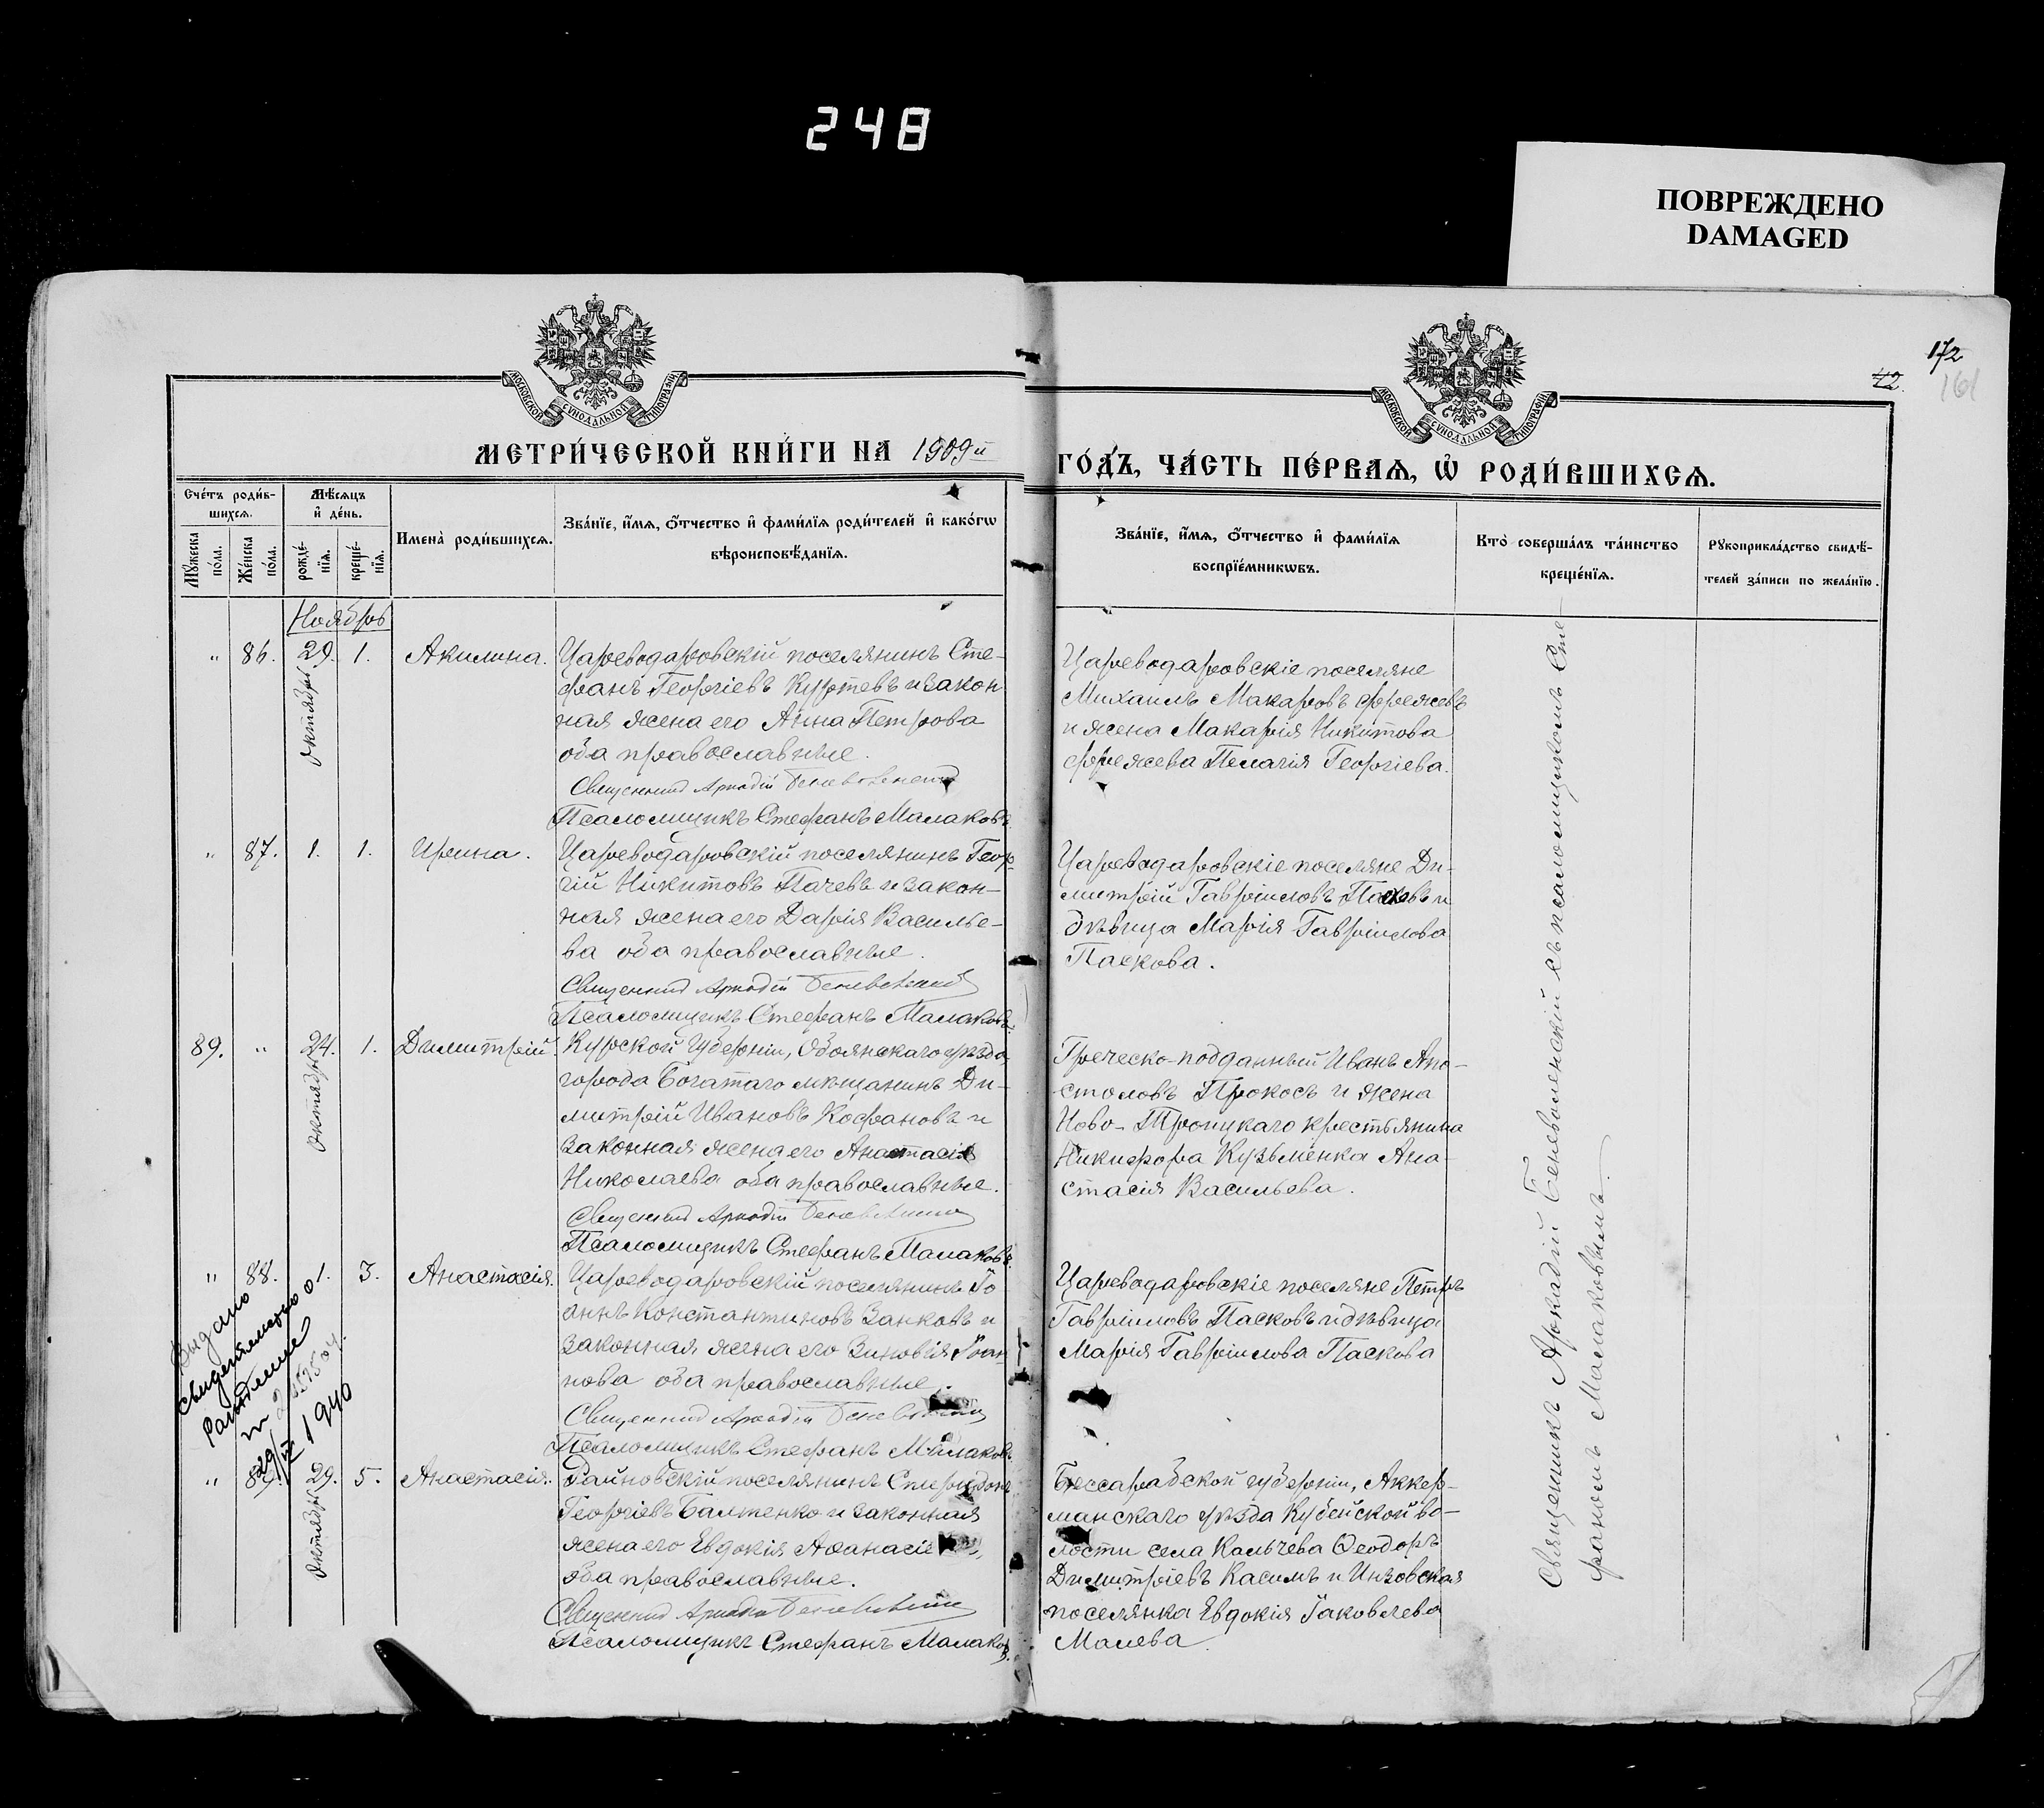 248
ПОВРЕЖДЕНО
DAMAGED
172
42.
161
МОСКОВСКОЙ СѴНОДАЛЬНОЙ ТИПОГРАФІИ
МОСКОВСКОЙ СѴНОДАЛЬНОЙ ТИПОГРАФІИ
МЕТРИ́ЧЕСКОЙ КНИ́ГИ НА 1909й
ГО́ДЪ, ЧА́СТЬ ПЕ́РВАѦ, Ѡ҆ РОДИ́ВШИХСѦ.
Сче́тъ роди́в-
шихсѧ.
Мѣ́сѧцъ
и҆ де́нь.
Мꙋ́жеска
по́ла.
Же́нска
по́ла.
рожде́-
нїѧ.
креще́-
нїѧ.
Имена̀ роди́вшихсѧ.
Зва́нїе, и҆́мѧ, ѻ҆́тчество и҆ фами́лїѧ роди́телей и҆ како́гѡ
вѣроисповѣ́данїѧ.
Зва́нїе, и҆́мѧ, ѻ҆́тчество и҆ фами́лїѧ
воспрїе́мникѡвъ.
Кто̀ соверша́лъ та́инство
креще́нїѧ.
Рꙋкоприкла́дство свидѣ́-
телей за́писи по жела́нїю.
Ноябрь
" 86. 29. Октября 1. Акилина.
Цареводаровскій поселянинъ Сте-
фанъ Георгіевъ Куртевъ и закон
ная жена его Анна Петрова
оба православные.
Священник Аркадій Беневоленскій
Псаломщикъ Стефанъ Малаковъ.
Цареводаровскіе поселяне
Михаилъ Макаровъ Фрежевъ
и жена Макарія Никитова
Фрежева Пелагія Георгіева.
" 87. 1. 1. Ирина.
Цареводаровскій поселянинъ Геор-
гій Никитовъ Пачевъ и закон-
ная жена его Дарія Василье-
ва оба православные.
Священник Аркадій Беневоленскій
Псаломщикъ Стефанъ Малаковъ.
Цареводаровскіе поселяне Ди-
митрій Гавріиловъ Пасковъ и
дѣвица Марія Гавріилова
Паскова.
89. " 24. Октября 1. Димитрій.
Курской Губерніи, Обоянскаго уѣзда
города Богатаго мѣщанинъ Ди-
митрій Ивановъ Кофановъ и
законная жена его Анастасія
Николаева оба православные.
Священник Аркадій Беневоленскій
Псаломщикъ Стефанъ Малаковъ.
Греческо-подданный Иванъ Апо-
столовъ Прокосъ и жена
Ново-Троицкаго крестьянина
Никифора Кузьменка Ана-
стасія Васильева.
" 88. 1. 3. Анастасія.
Цареводаровскій поселянинъ Іо
аннъ Константиновъ Занковъ и
законная жена его Зиновія Іоан-
нова оба православные.
Священник Аркадій Беневоленскій
Псаломщикъ Стефанъ Малаковъ
Цареводаровскіе поселяне Петръ
Гавріиловъ Пасковъ и дѣвица
Марія Гавріилова Паскова
Выдано
свидетельство о
рождение
29/IV 1940
" 89. 29. Октября 5. Анастасія.
Раиновскій поселянинъ Спиридонъ
Георгіевъ Балтенко и законная
жена его Евдокія Аѳанасіе
оба православные.
Священник Аркадій Беневоленскій
Псаломщикъ Стефанъ Малаковъ.
Бессарабской губерніи, Аккер-
манскаго уѣзда Кубейской во-
лости села Кальчева Ѳеодоръ
Димитріевъ Касимъ и Инзовская
поселянка Евдокія Іаковлева
Малева.
Священникъ Аркадій Беневоленскій съ псаломщикомъ Сте-
фаномъ Малаковымъ.